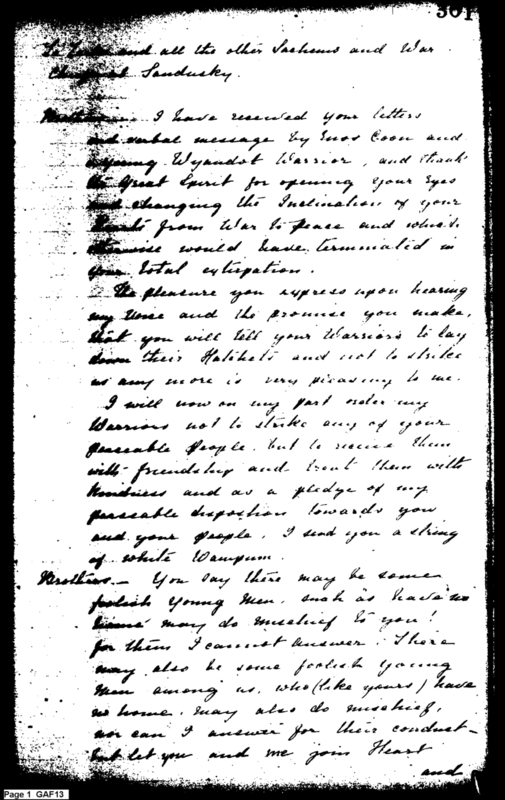 301
To Tarke and all the other Sachems and War
Chiefs at Sandusky.
Brothers. — I have received your letters
and verbal message by Enos Coon and
a young Wyandot Warrior, and thank
the Great Spirit for opening your Eyes
and changing the Inclination of your
Hearts from War to peace and which
otherwise would have terminated in
your total extirpation.
— The pleasure you express upon hearing
my Voice and the promise you make,
that you will tell your Warriors to lay
down their Hatchets and not to strike
us any more is very pleasing to me.
I will now on my part order my
Warriors not to strike any of your
peaceable people, but to receive them
with friendship and treat them with
kindness and as a pledge of my
peaceable disposition towards you
and your people, I send you a string
of white Wampum.
Brothers. — You say there may be some
foolish young men, such as have no
may do mischief to you!
for them I cannot answer. There
may also be some foolish young
men among us, who (like yours) have
no home, may also do mischief,
nor can I answer for their conduct —
but let you and me join Heart
and
Page 1 GAF13